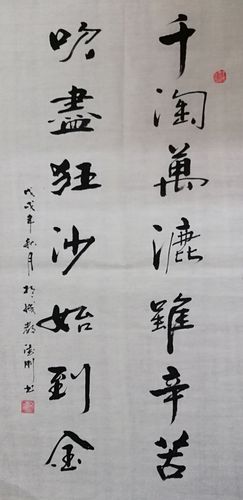 千淘萬漉雖辛苦
吹盡狂沙始到金
戊戌年秋月